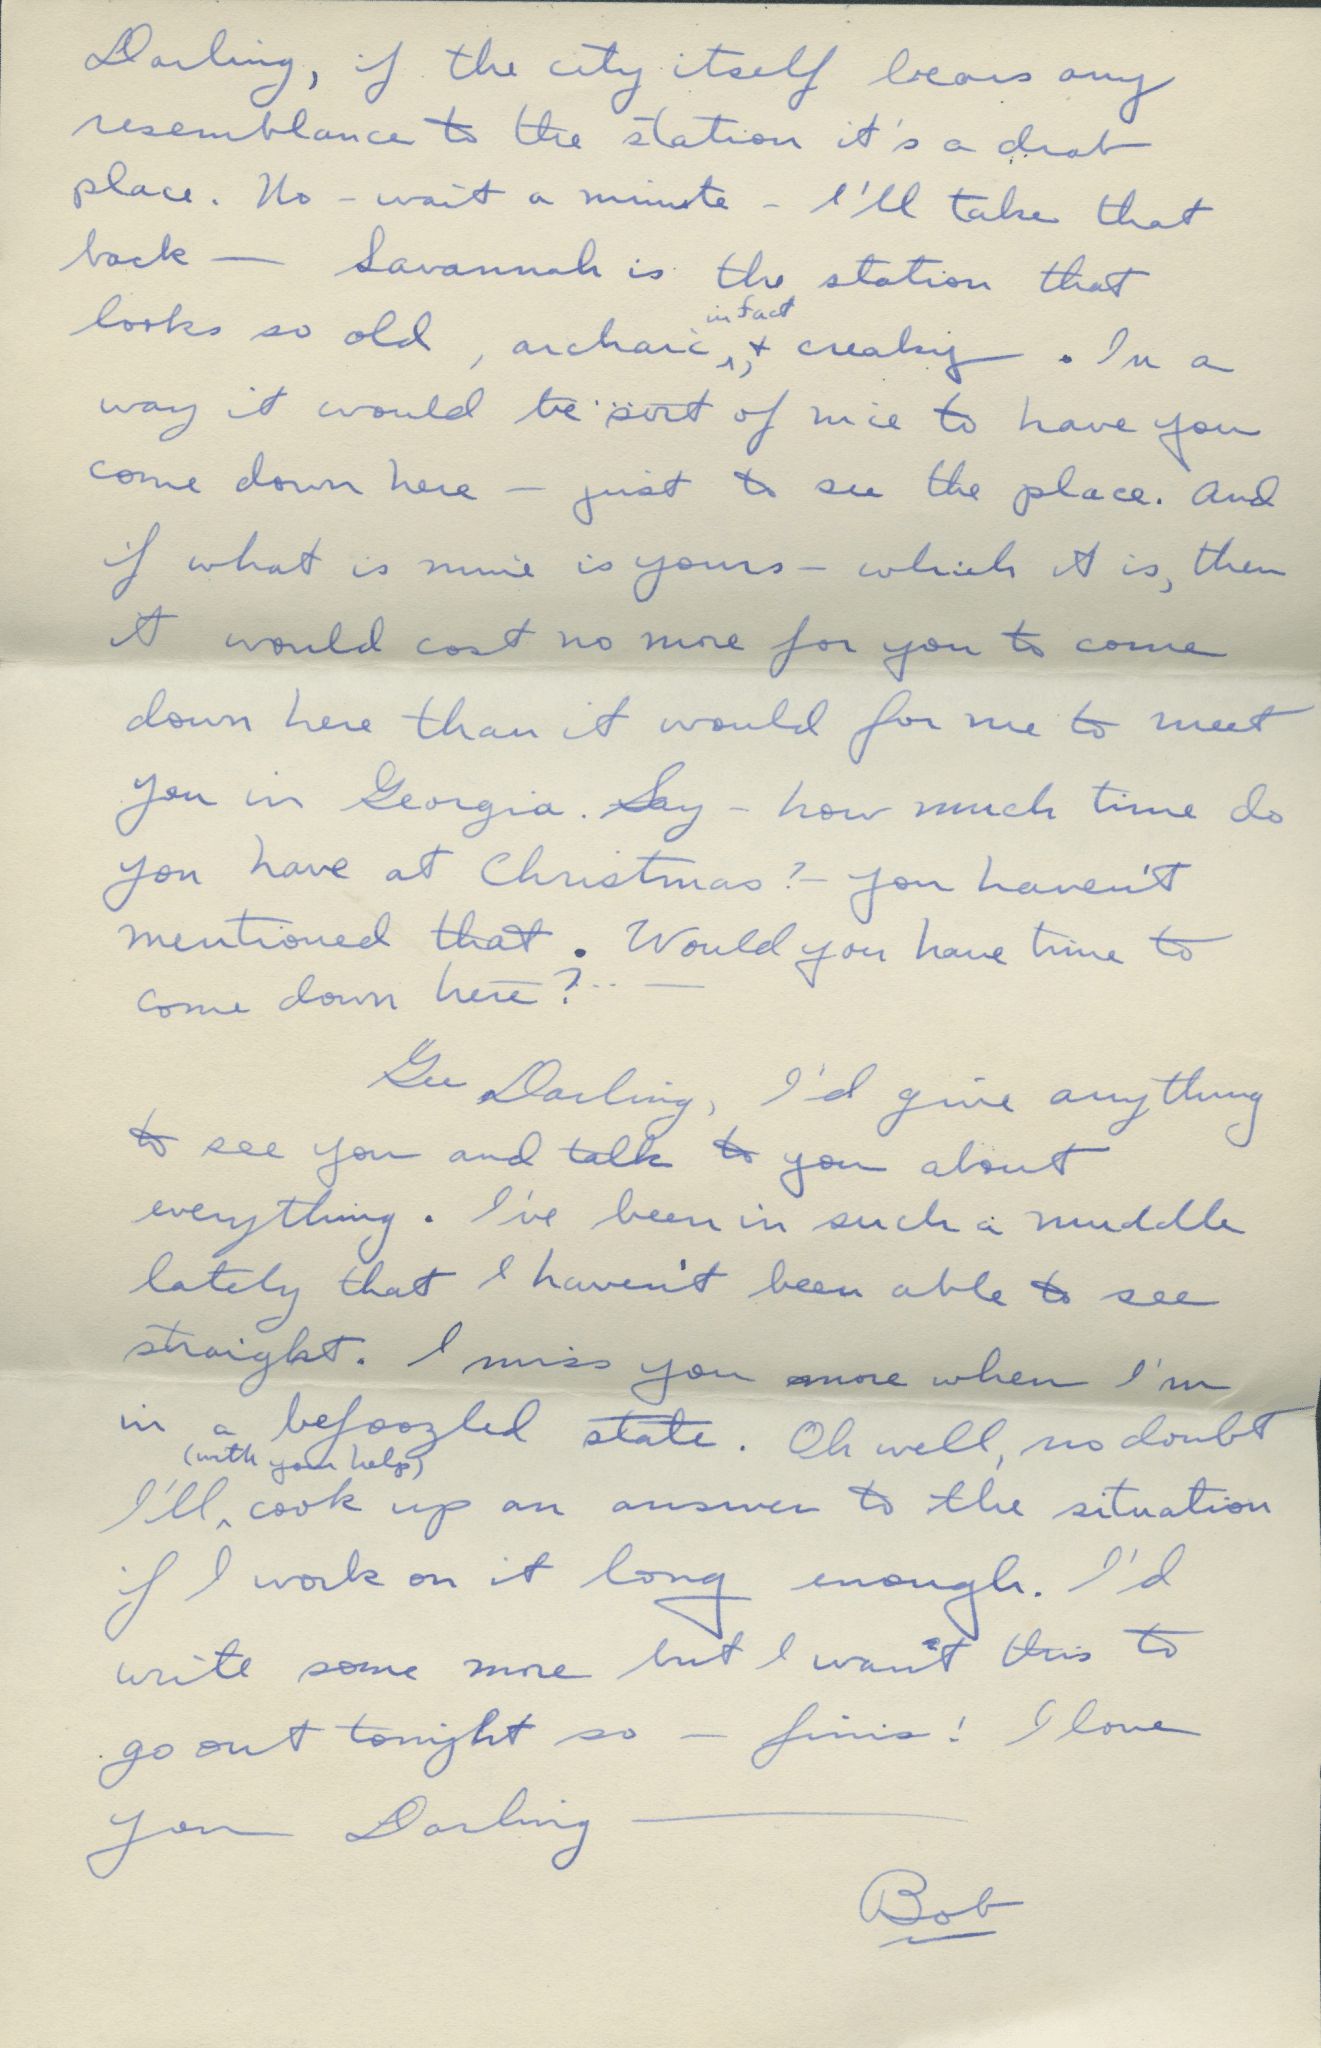 Darling, if the city itself bears any
resemblance to the station it's a drab
place. No - wait a minute - I'll take that
back — Savannah is the station that
in fact
looks so old, archaic, & creaky. In a
way it would be sort of nice to have you
come down here — just to see the place. And
if what is mine is yours - which it is, then
it would cost no more for you to come
down here than it would for me to meet
you in Georgia. Say - how much time do
you have at Christmas? - you haven't
mentioned that. Would you have time to
come down here? —
Gee Darling, I'd give anything
to see you and talk to you about
everything. I've been in such a muddle
lately that I haven't been able to see
straight. I miss you more when I'm
in a befoozled state. Oh well, no doubt
(with your help)
I'll ^ cook up an answer to the situation
if I work on it long enough. I'd
write some more but I want this to
go out tonight so — finis! I love
you Darling —
Bob